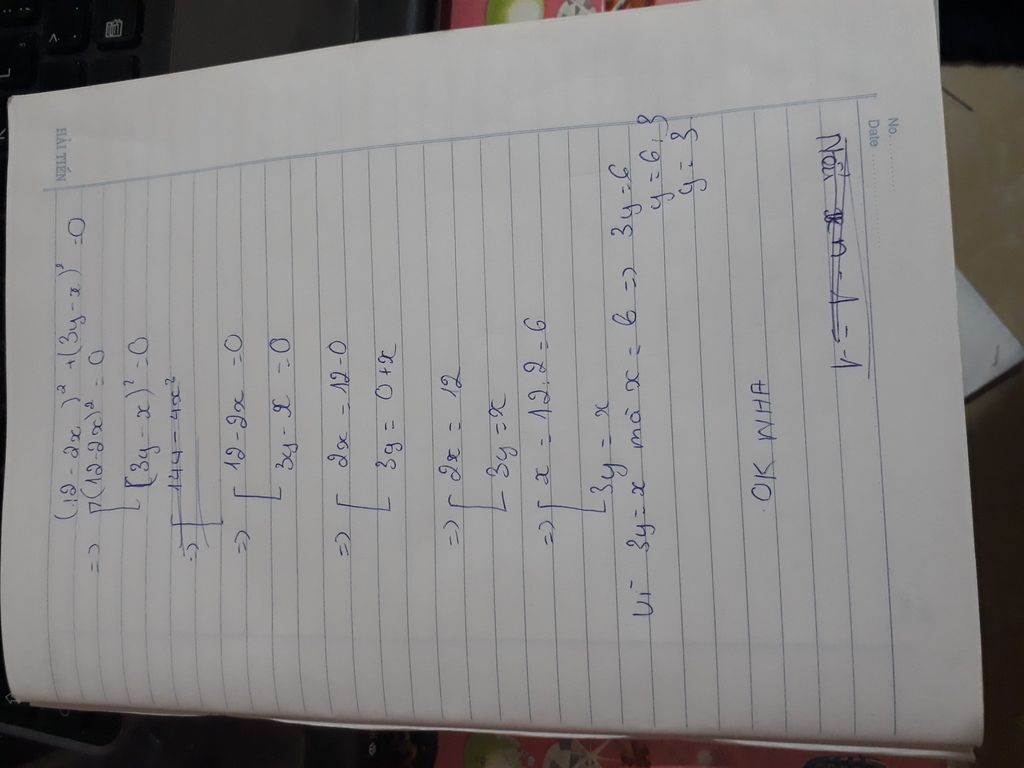 HẢI TIẾN
(12 - 2x)² + (3y - x)² = 0
=> [ (12 - 2x)² = 0
[ (3y - x)² = 0
=> [ 144 - 4x²
=> [ 12 - 2x = 0
[ 3y - x = 0
=> [ 2x = 12 - 0
[ 3y = 0 + x
=> [ 2x = 12
[ 3y = x
=> [ x = 12 . 2 = 6
[ 3y = x
Vì 3y = x mà x = 6 => 3y = 6
y = 6 . 3
y = 3
OK NHA
= 1
Date
No.